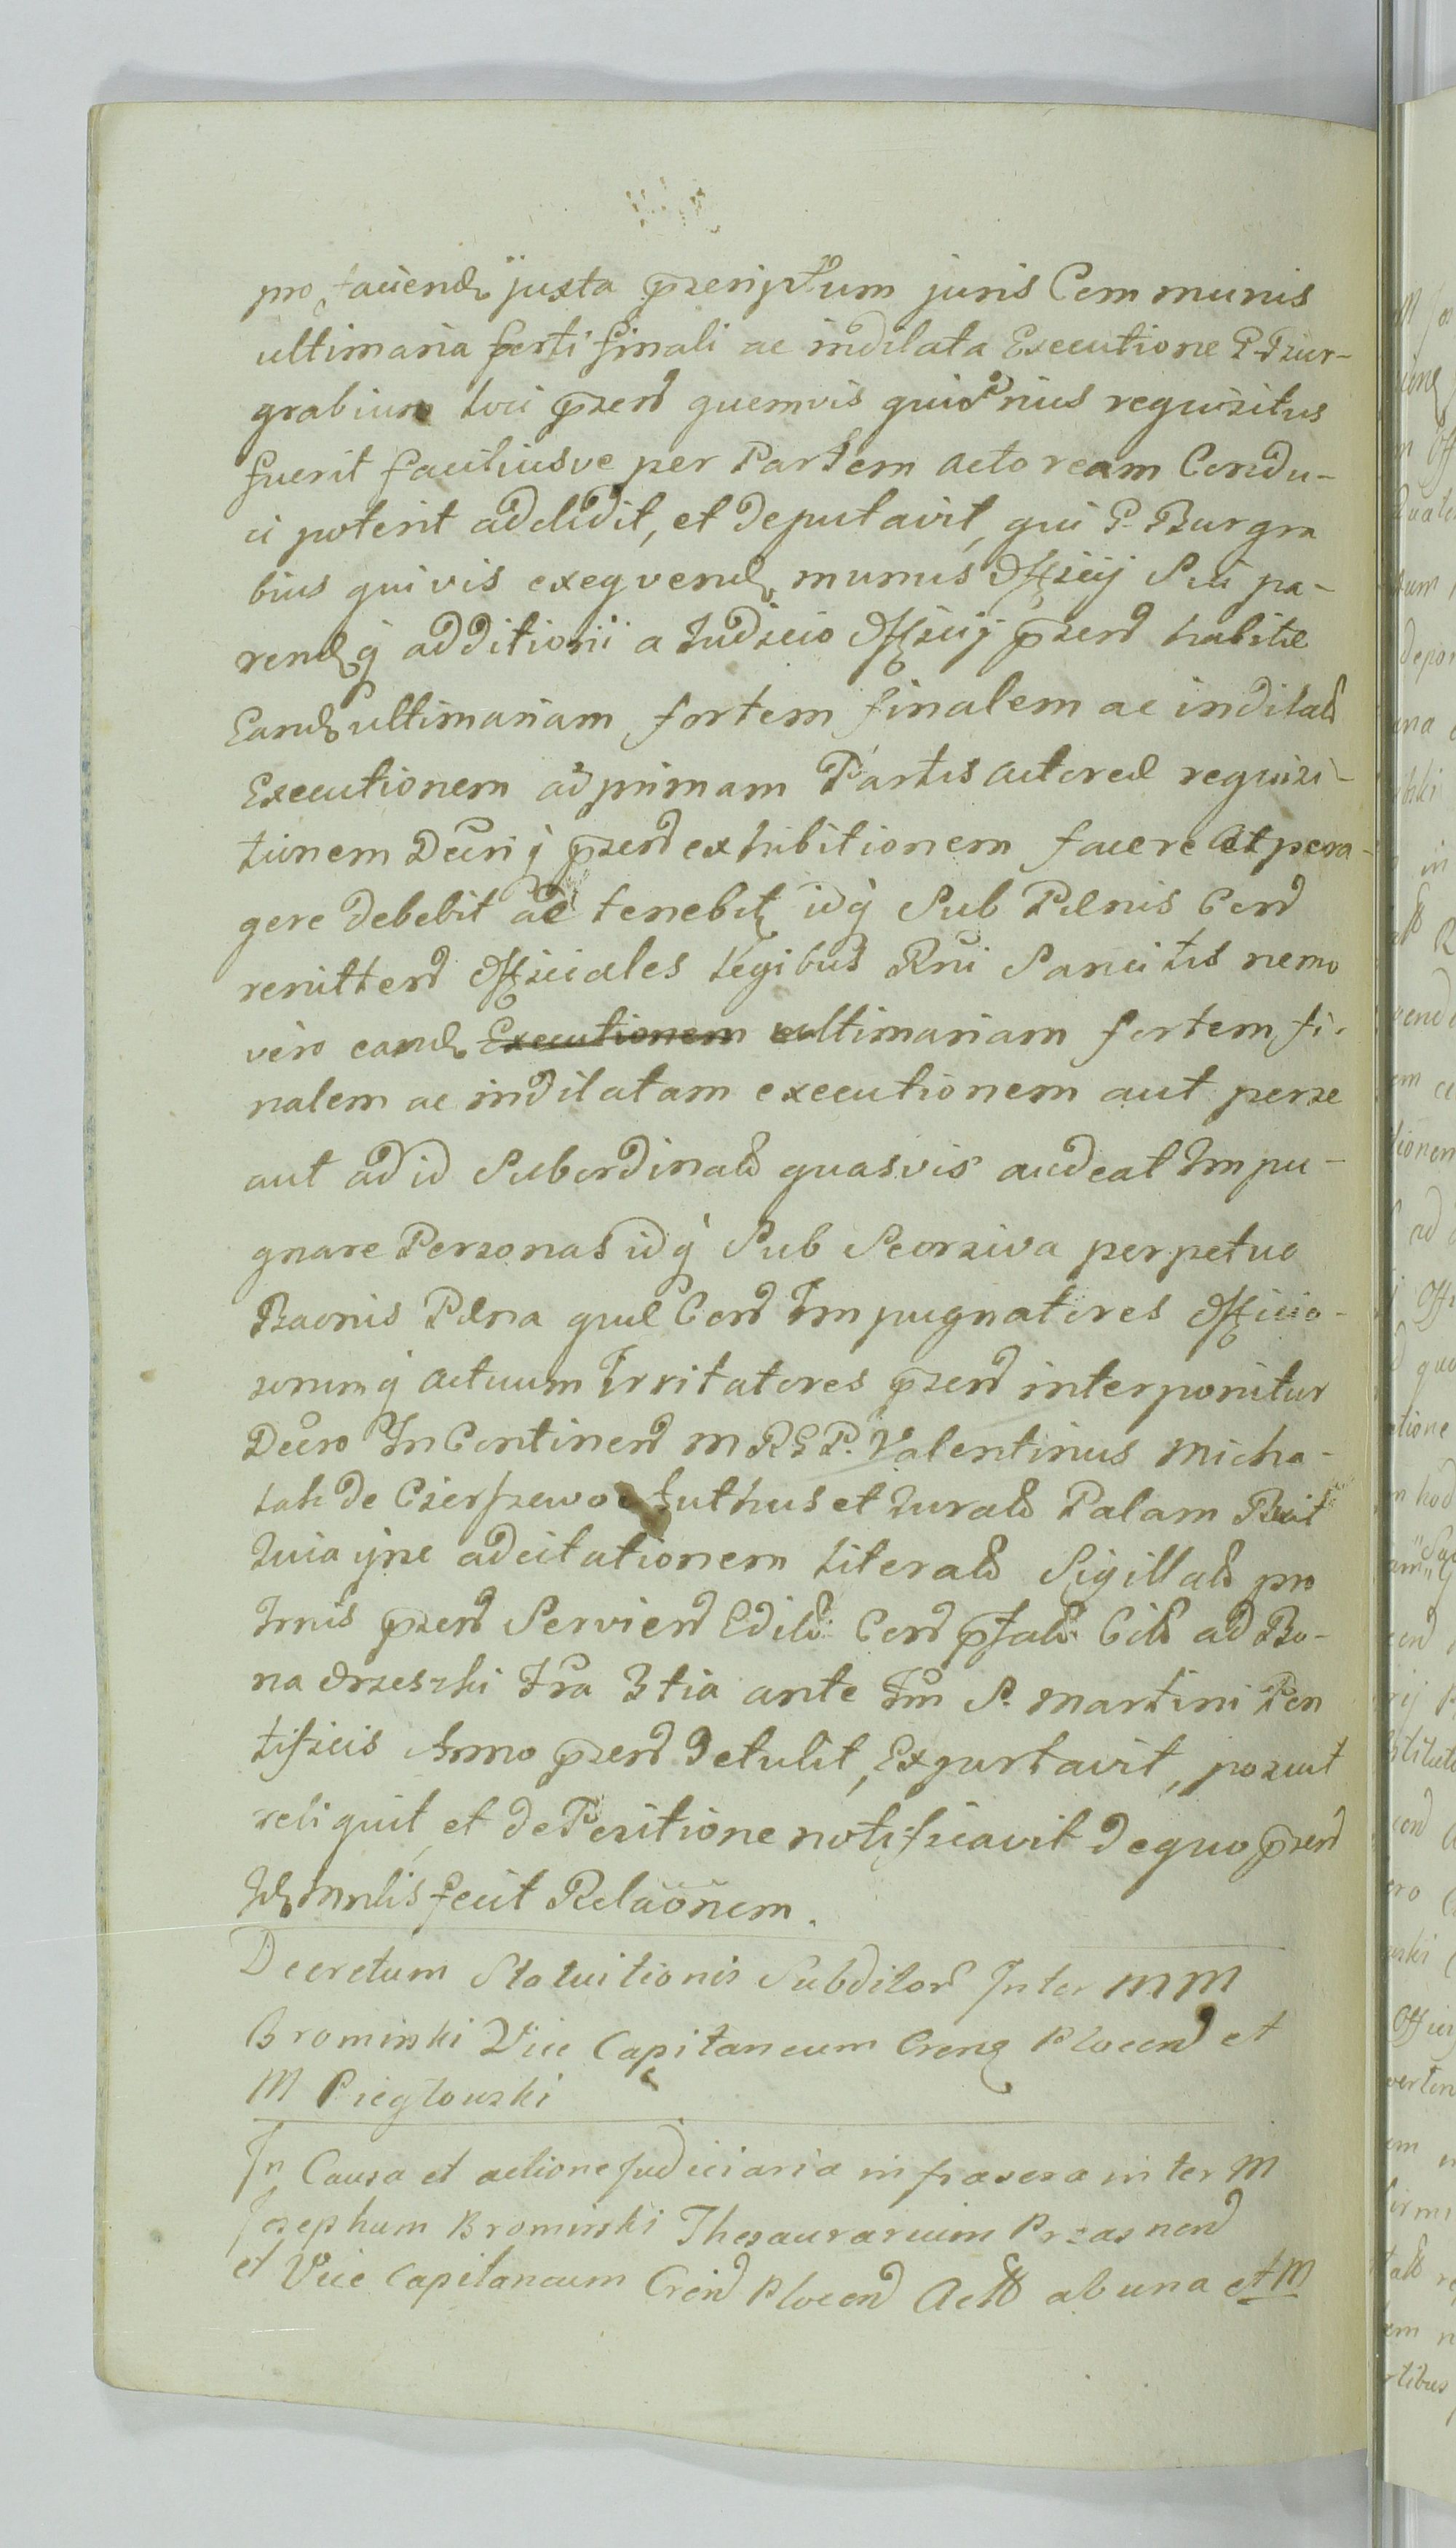 pro faciend juxta przeriptum juris Communis
ultimaria forti finali ac indilata Executione P. Bur-
grabium loci przend quemvis qui prius requizitus
fuerit faciliusve per Partem actoream Condu-
ci poterit addidit, et deputavit, qui P. Burgra
bius quivis exeqvend munus Offzcij Sui pa-
rendq additionii a Judzcio Offzcij przend habitæ
Eand ultimariam fortem finalem ac indilatt
Executionem ad primam Partis actoreæ requizi-
tionem Decriq przend exhibitionem facere et pera-
gere debebit ac tenebit idq Sub Pænis Cond
renittend Offziciales Legibus Rni Sancitis nemo
vero eand Executionem ultimariam fortem fi-
nalem ac indilatam executionem aut perze
aut ad id Subordinatt quasvis audeat Impu-
gnare Perzonas idq Sub Seorziva perpetuo
Baonis Pæna quæ Cond Impugnatores Officio-
zorumq actuum Irritatores przend interponitur
Decro In Continend M R G P. Valentinus Micha-
lak de Czerfzewo Authus et Juratt Palam Rcit
Quia ipze ad citationem Literatt Sigillatt pro
Irnis przend Serviend Editt Cond pfatt Citt ad Bo-
na Orzeszki Fra 3tia ante Fm S. Martini Pon
tifzcis Anno przend Detulit, Exportavit, pozuit
reliquit, et de Pozitione notifzcavit de quo przend
Id Mnlis fecit Relaõnem.
Decretum Statuitionis Subditor Inter MM
Brominski Vice Capitaneum Crenz Plocend et
M Pieglowski
In Causa et actione Judiciaria infraveza inter M
Jozephum Brominski Thezaurarium Przasnend
et Vice Capitaneum Crend Plocend Actt ab una et M